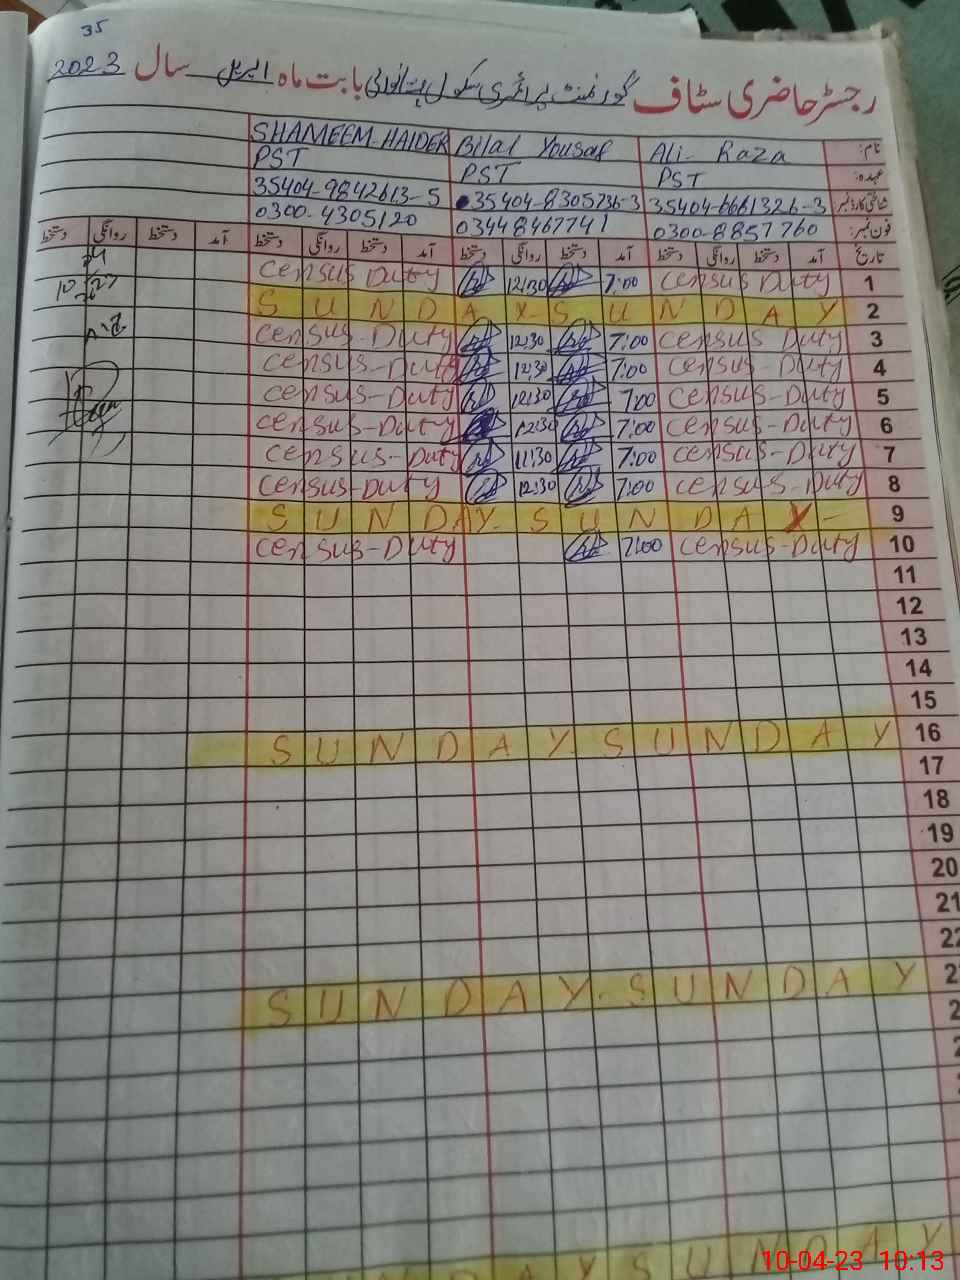 35
رجسٹر حاضری سٹاف گورنمنٹ پرائمری سکول بابت ماہ اپریل سال 2023
نام: Ali Raza Bilal Yousaf SHAMEEM HAIDER
عہدہ: PST PST PST
شناختی کارڈ نمبر 35404-6661326-3 35404-8305736-3 35404-9842613-5
فون نمبر: 0300-8857760 03448467741 0300-4305120
تاریخ آمد دستخط روانگی دستخط آمد دستخط روانگی دستخط آمد دستخط روانگی دستخط آمد دستخط روانگی دستخط
Census Duty 12:30 7:00 Census Duty 1
S U N D A Y S U N D A Y 2
Census-Duty 12:30 7:00 Census Duty 3
Census-Duty 12:30 7:00 Census-Duty 4
Census-Duty 12:30 7:00 Census-Duty 5
Census-Duty 12:30 7:00 Census-Duty 6
Census-Duty 12:30 7:00 Census-Duty 7
Census-Duty 12:30 7:00 Census-Duty 8
S U N D A Y - S U N D A Y - 9
Census-Duty 7:00 Census-Duty 10
11
12
13
14
15
S U N D A Y S U N D A Y 16
17
18
19
20
21
22
S U N D A Y - S U N D A Y 2
2
2
D A Y S U N D A Y
10-04-23 10:13